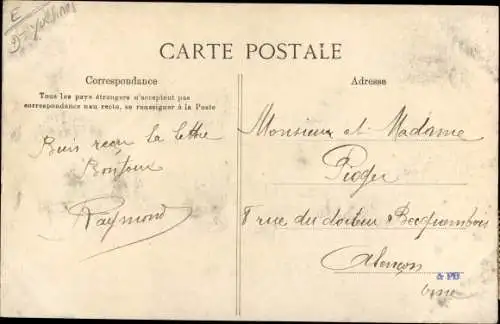 E
CARTE POSTALE
Correspondance
Tous les pays étrangers n'acceptent pas
correspondance nau recto, se renseigner à la Poste
Bais reçu la lettre
Bonjour
Raymond
Adresse
Monsieur et Madame
Pioger
8 rue du docteur Becquembois
Alençon
Orne